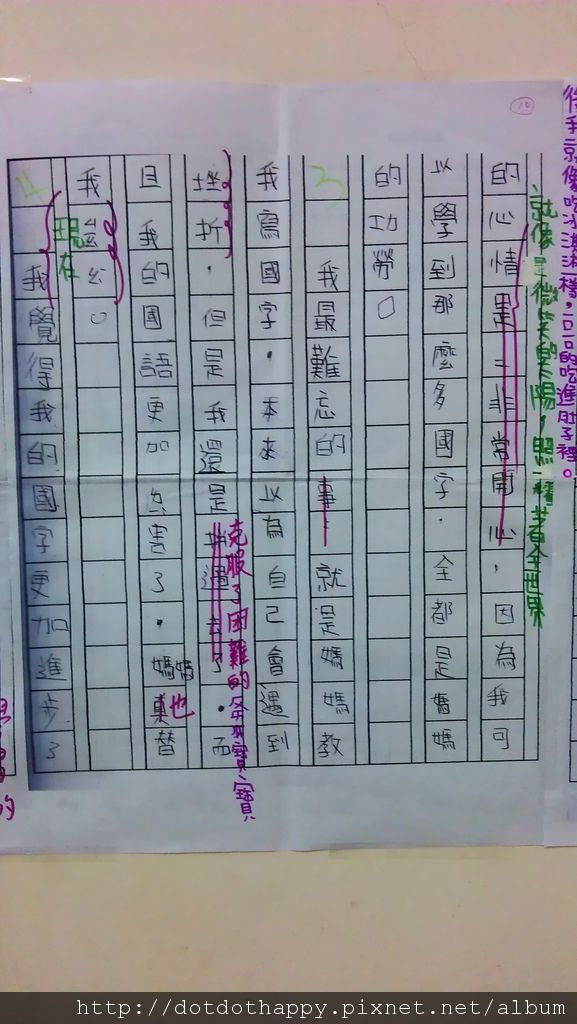 得我就像吃冰淇淋一樣，一口一口的吃進肚子裡。
就像是微笑的太陽，照耀著全世界
10
的心情是二非常開心，因為我可
以學到那麼多國字，全都是媽媽
的功勞。
3
我最難忘的事，就是媽媽教
我寫國字，本來以為自己會遇到
挫折，但是我還是
過去了，而
克服了困難的
寶寶
且我的國語更加厲害了，媽媽
也替
我
。
現在
4
我覺得我的國字更加進步了
http://dotdothappy.pixnet.net/album